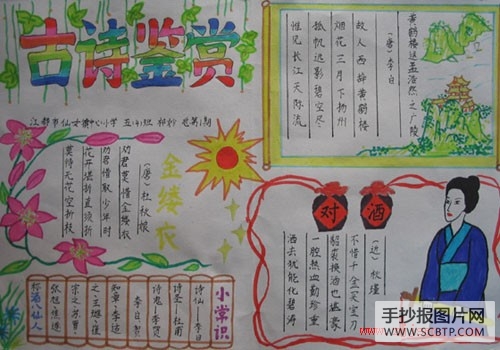 古诗鉴赏
江都市仙女镇中心小学 五(4)班
黄鹤楼送孟浩然之广陵
(唐)李白
故人西辞黄鹤楼
烟花三月下扬州
孤帆远影碧空尽
惟见长江天际流
金缕衣
(唐)杜秋娘
劝君莫惜金缕衣
劝君惜取少年时
花开堪折直须折
莫待无花空折枝
对酒
(近)秋瑾
不惜千金买宝刀
貂裘换酒也堪豪
一腔热血勤珍重
洒去犹能化碧涛
小常识
诗仙—李白
诗圣—杜甫
诗鬼—李贺
李白、贺
知章、李适
之、王琎、崔
宗之、苏晋、
张旭、焦遂
称酒八仙人
手抄报图片网
WWW.SCBTP.COM